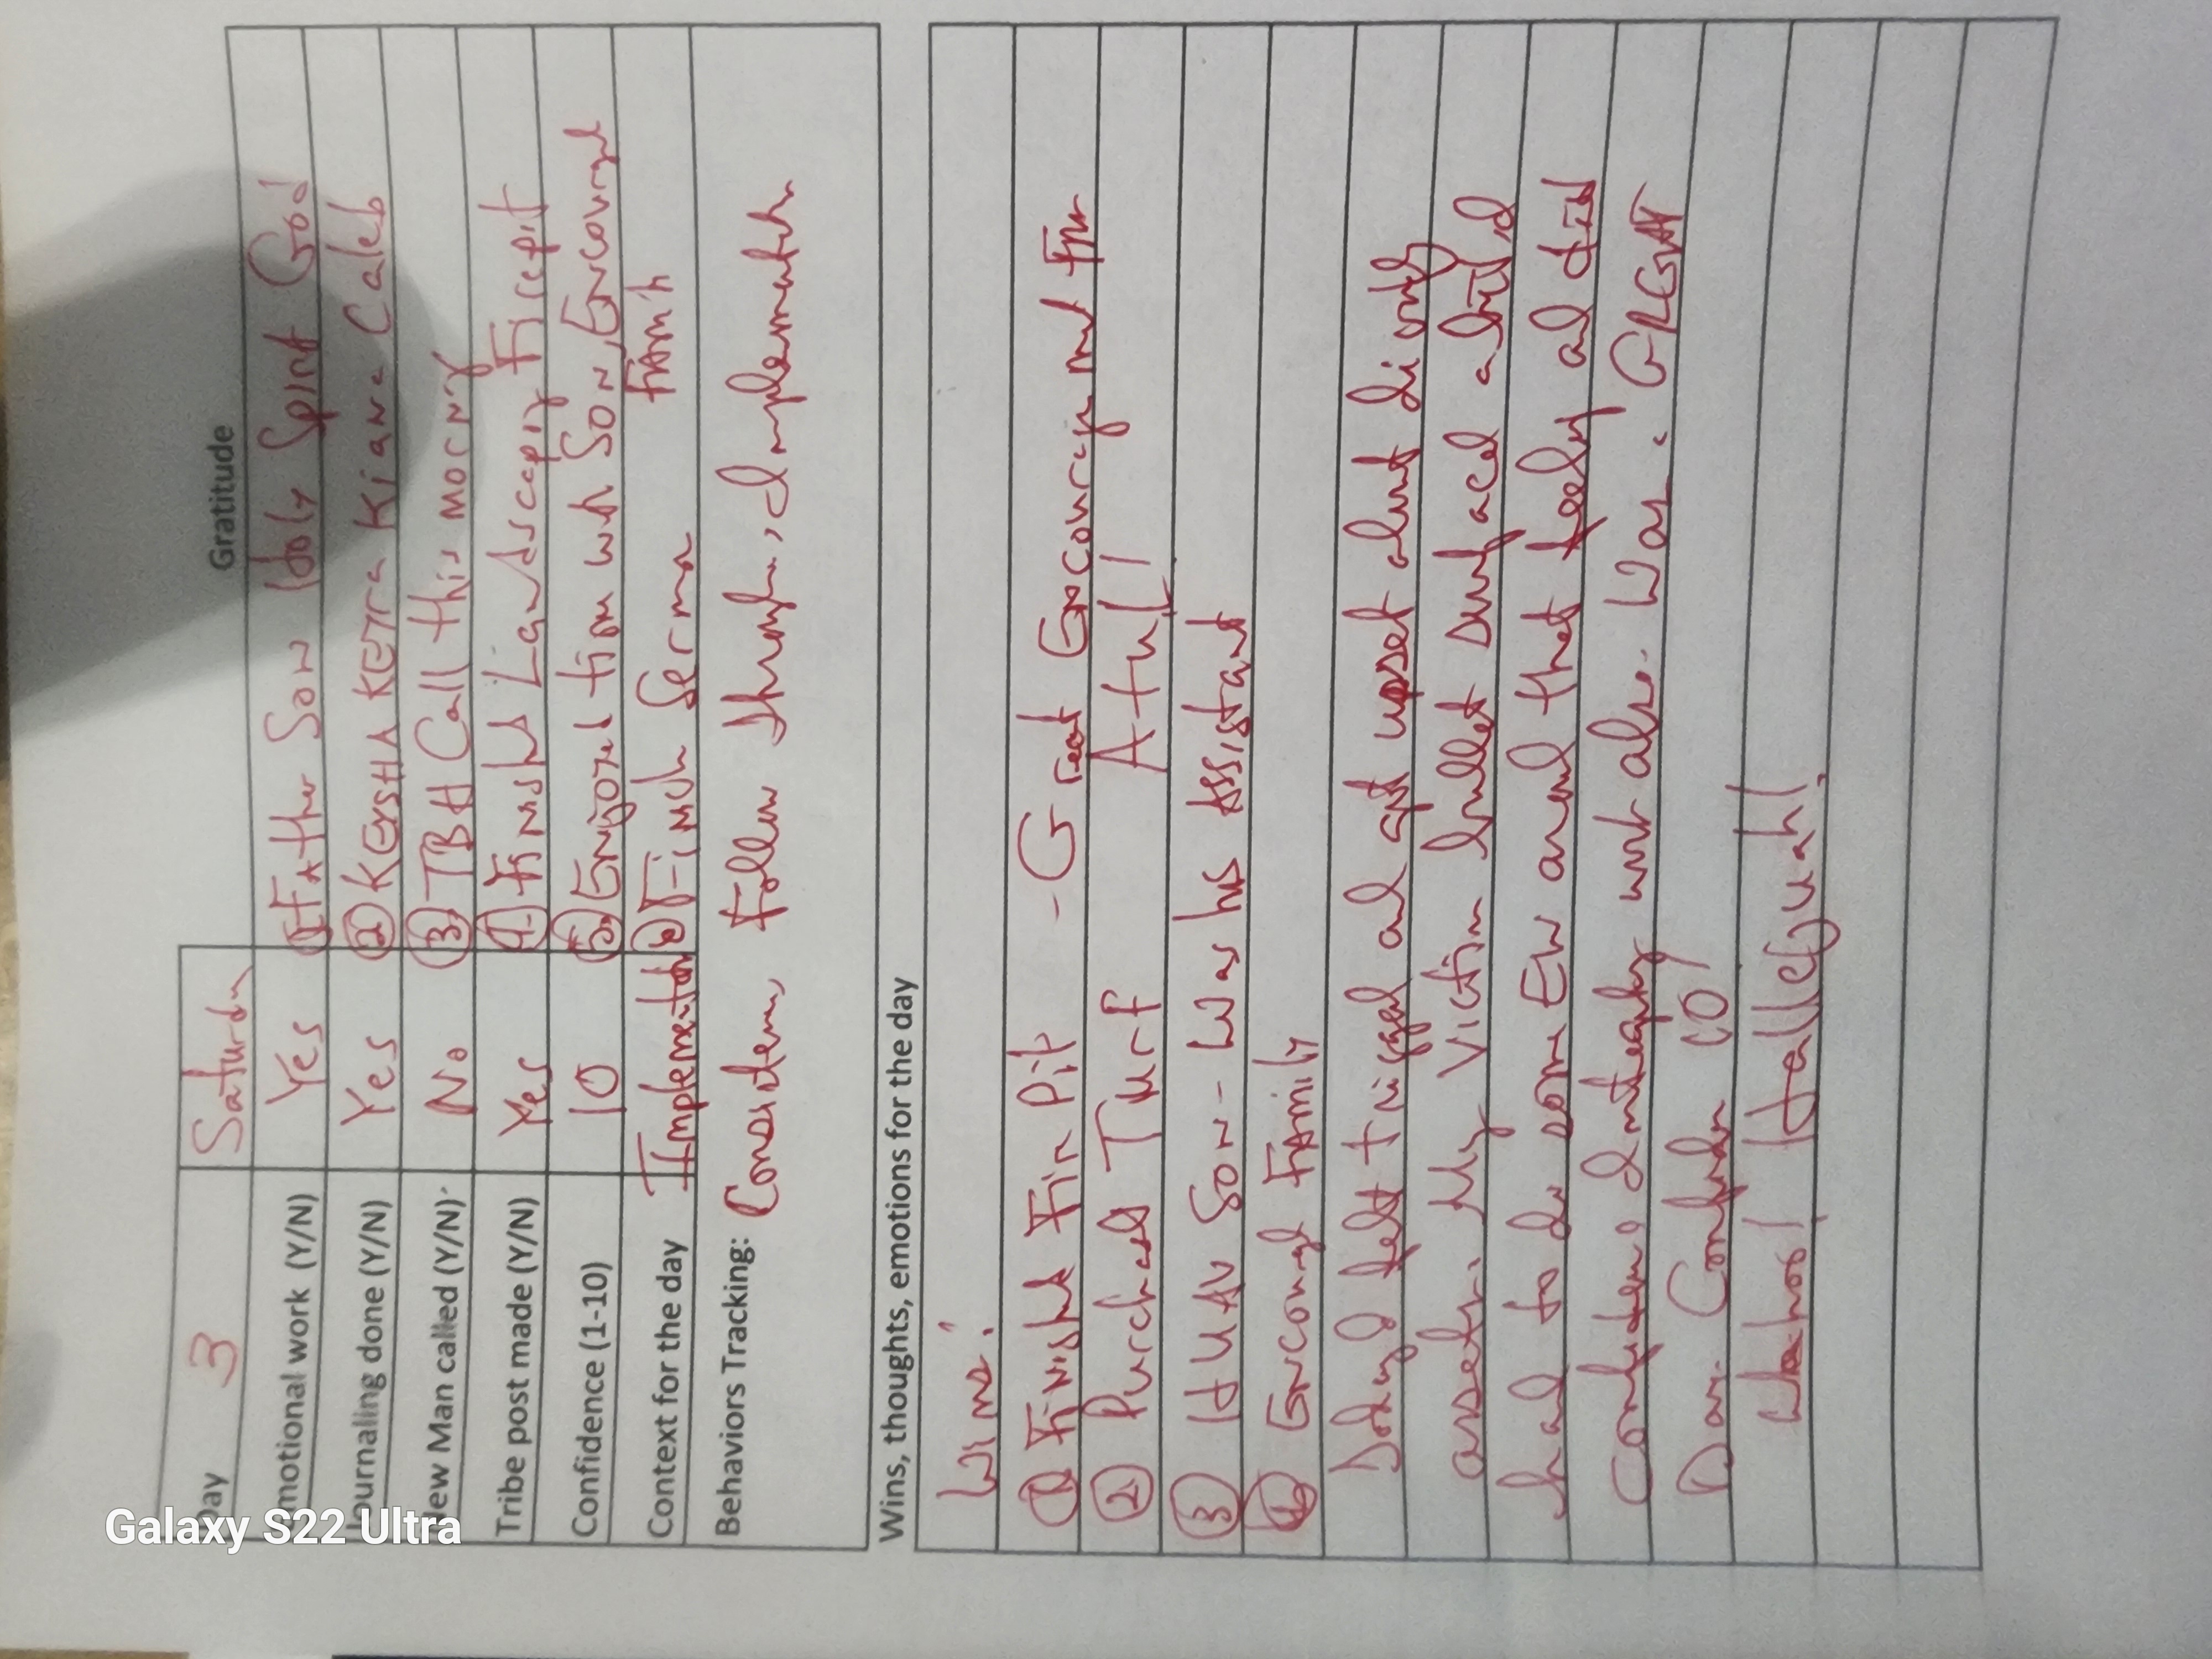 Gratitude
Day 3 Saturday
Emotional work (Y/N) Yes ① Father Son Holy Spirit God
Journaling done (Y/N) Yes ② KEYSHA KEYra Kiana Caleb
New Man called (Y/N) No ③ TBH Call this morng
Tribe post made (Y/N) Yes ④ Finishd Landscaping Firepit
Confidence (1-10) 10 ⑤ Enjoyed time with Son, Encourage
Family
Context for the day Implementation ⑥ Finish Sermon
Behaviors Tracking: Consistency Follow through, Implementation
Wins, thoughts, emotions for the day
Wins:
① Finished Fire Pit - Great Encouragement From
② Purchased Turf Atul!
③ HUAV Son - Was his Assistant
④ Encouraged Family
Today I felt triggered and got upset about
assets. My Victim bullet surfaced and I
had to do some EW around that feeling and did
Confidence Integrity work also. Was a GREAT
Day. Confidence 10!
Wahoo! Hallelujah!
Galaxy S22 Ultra